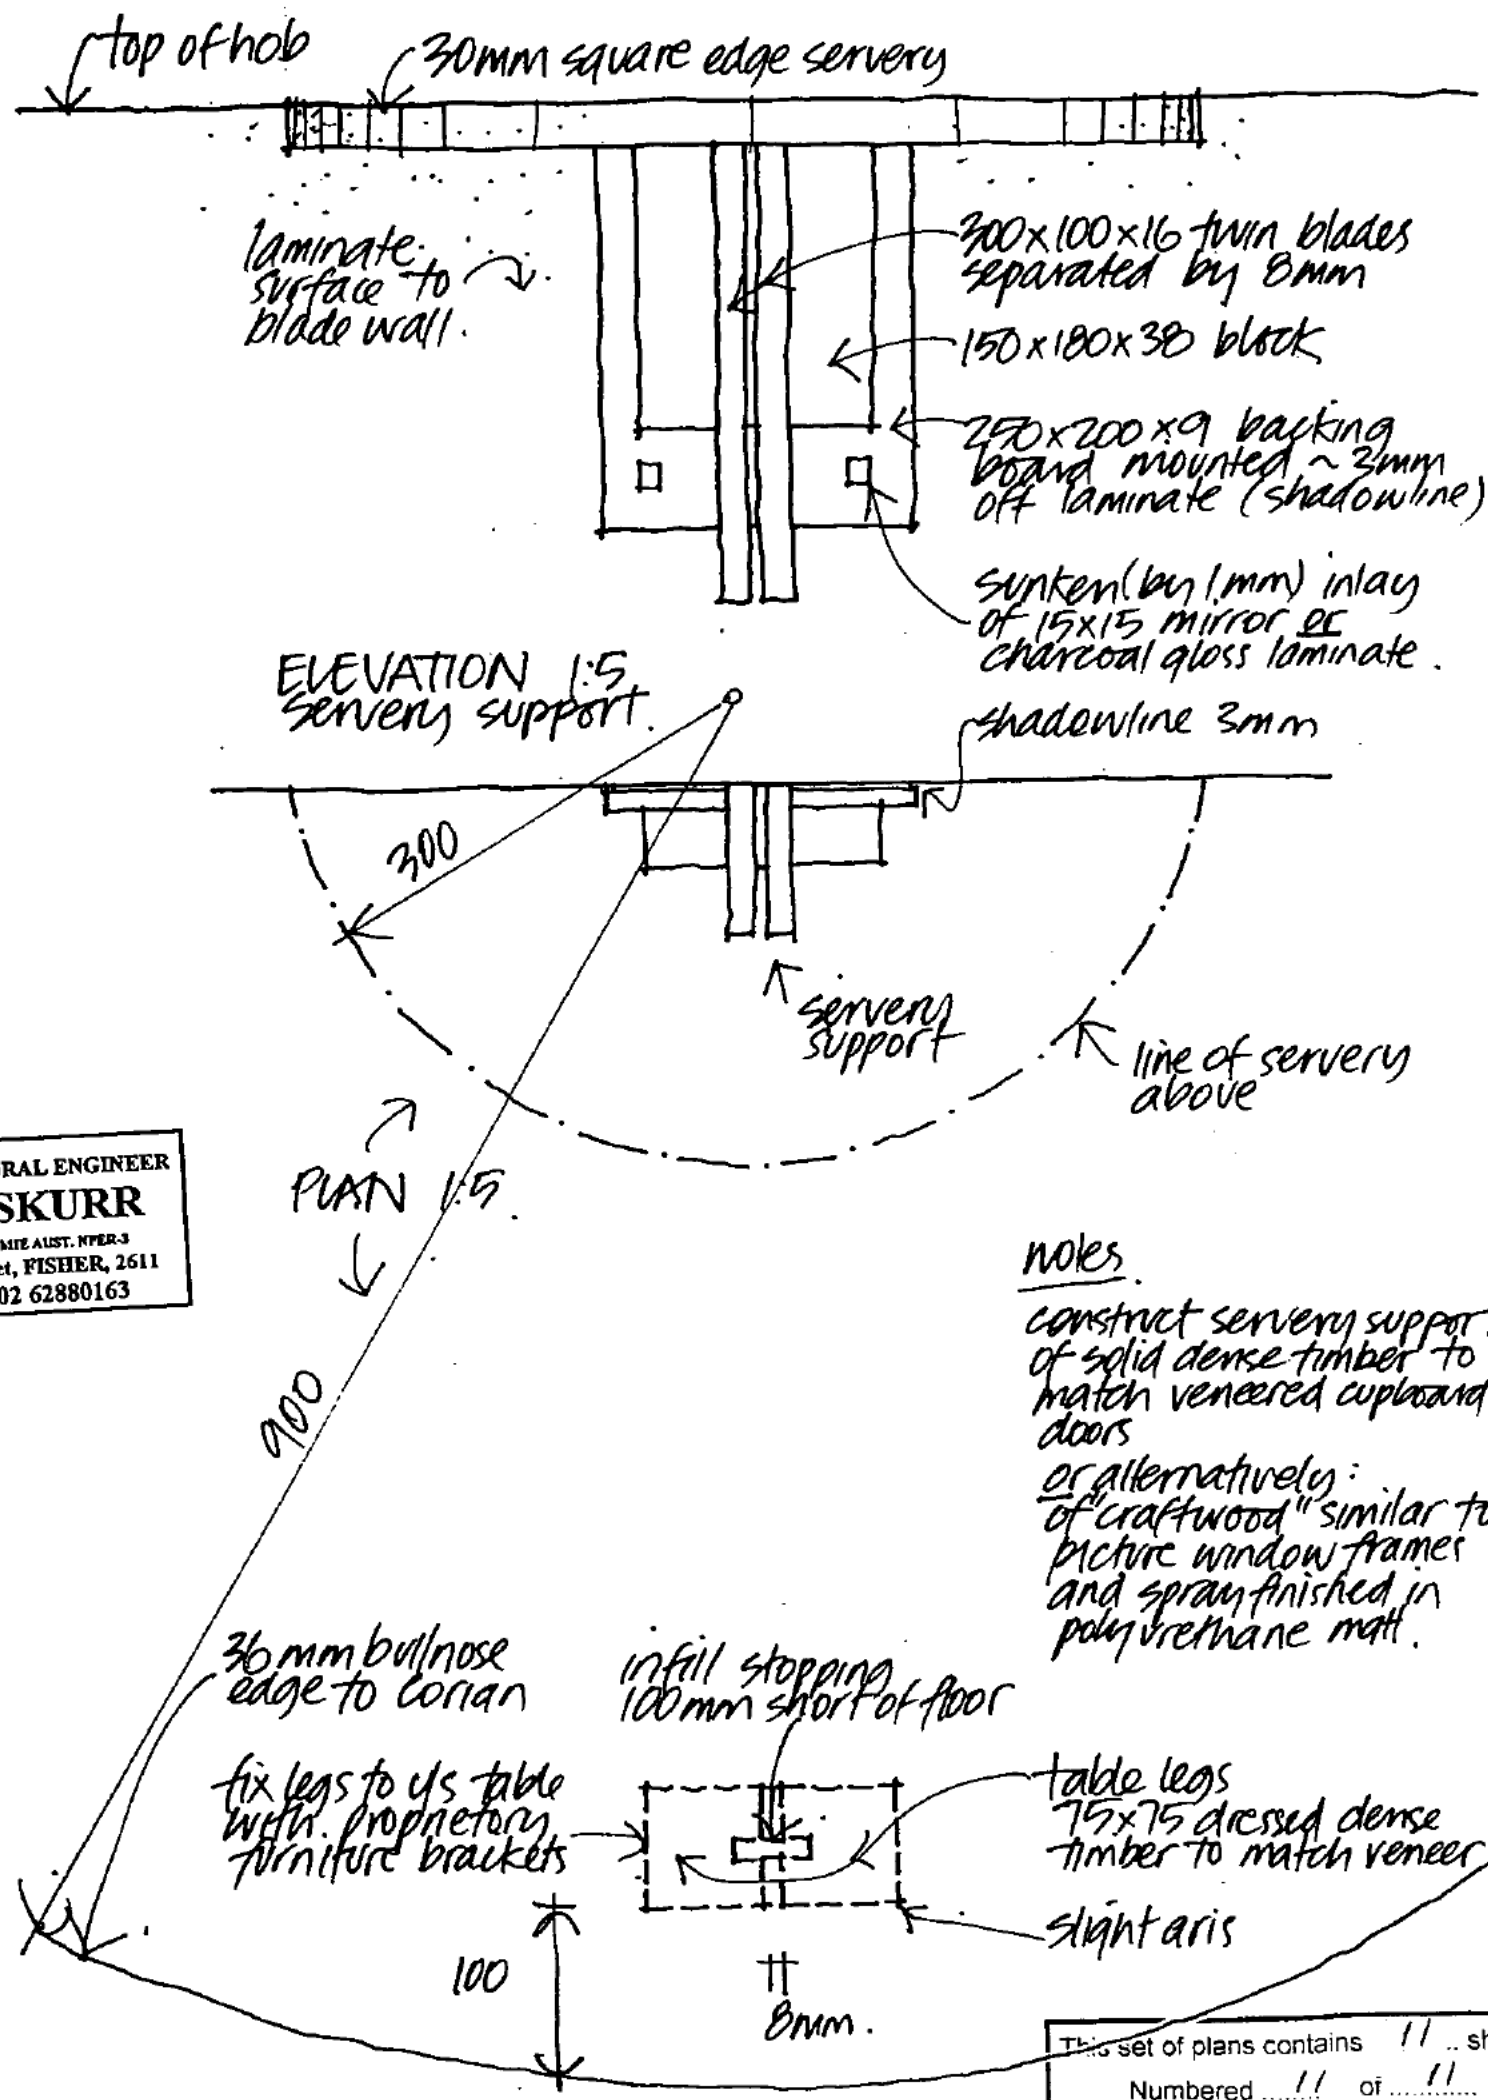 top of hob
30mm square edge servery
laminate
surface to
blade wall.
300x100x16 twin blades
separated by 8mm
150x180x38 block
250x200x9 backing
board mounted ~ 3mm
off laminate (shadowline)
sunken (by 1mm) inlay
of 15x15 mirror or
charcoal gloss laminate.
ELEVATION 1:5
servery support.
shadowline 3mm
300
servery
support
line of servery
above
RAL ENGINEER
SKURR
MIE AUST. NPER-3
et, FISHER, 2611
02 62880163
PLAN 1:5.
900
notes.
construct servery support
of solid dense timber to
match veneered cupboard
doors
or alternatively:
of "craftwood" similar to
picture window frames
and spray finished in
polyurethane matt.
36mm bullnose
edge to corian
infill stopping
100mm short of floor
fix legs to u/s table
with proprietory
furniture brackets
table legs
75x75 dressed dense
timber to match veneer
slight aris
100
8mm.
This set of plans contains 11 .. sh
Numbered 11 of 11